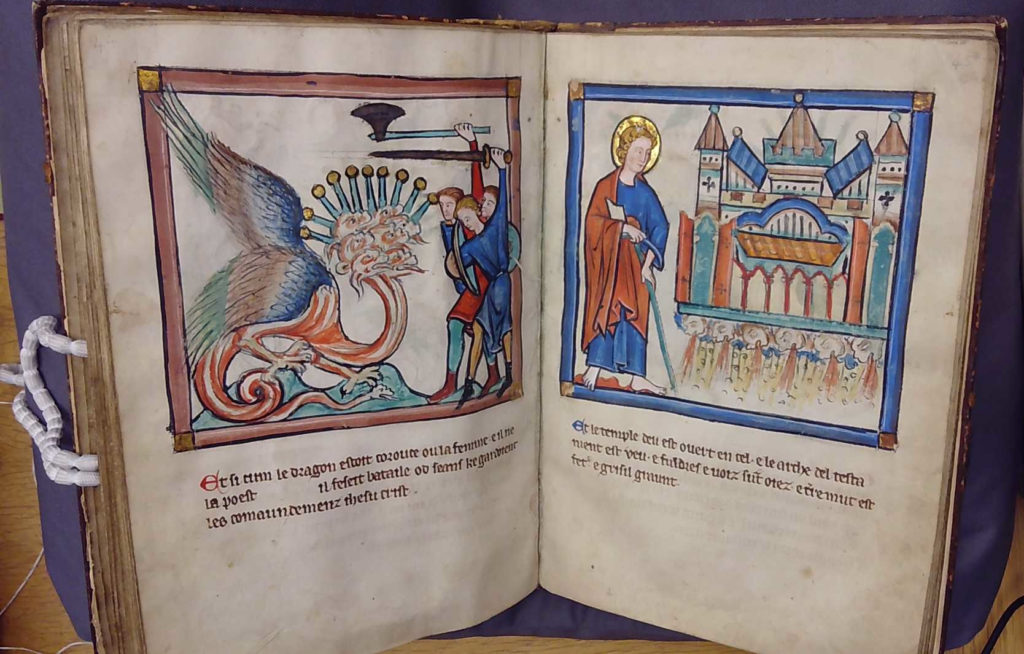 Et si cum le dragon estoit coroute ou la femme e il ne
la poest il feseit bataile od seans ke gardoient
les comaundemenz ihesu crist.
Et le temple deu est overt en cel. e le arche del testa
ment est veu. e fuldres e voiz sunt oiez e tremut est
fet. e grisil graunt.